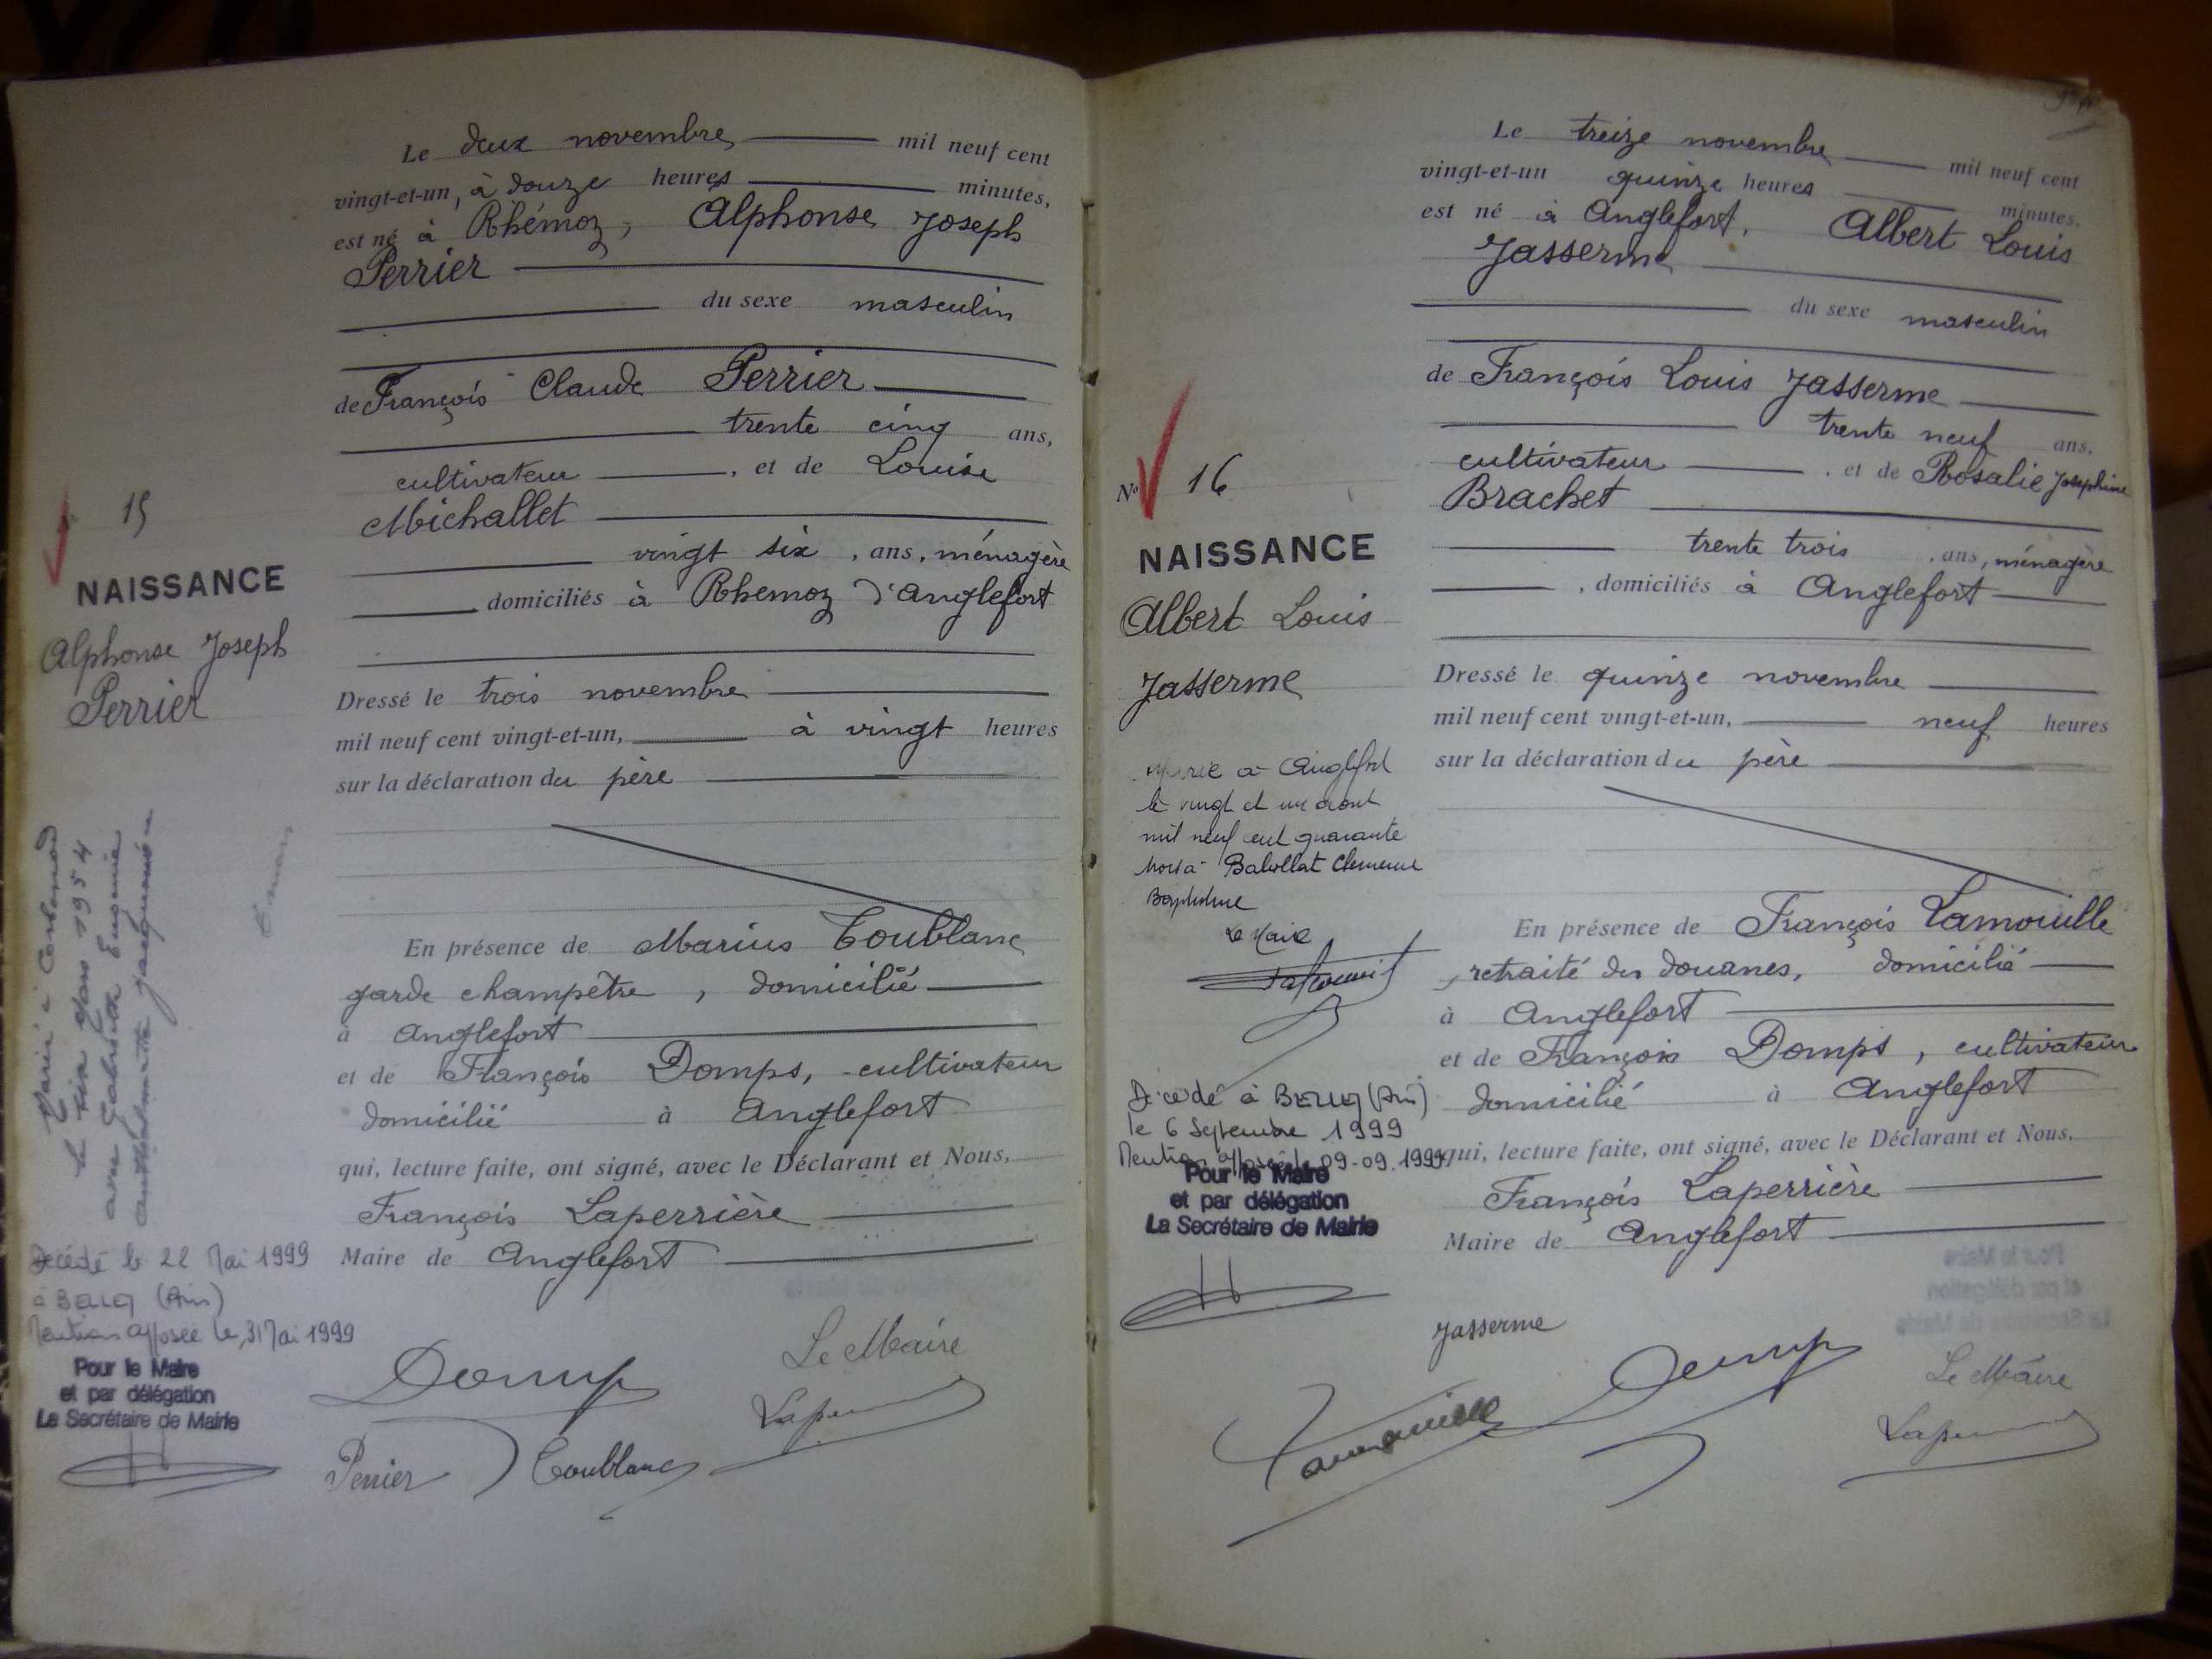 Le deux novembre mil neuf cent
vingt-et-un, à douze heures minutes,
est né à Rhémoz, Alphonse Joseph
Perrier
du sexe masculin
de François Claude Perrier
trente cinq ans,
cultivateur, et de Louise
Michallet
vingt six, ans, ménagère
domiciliés à Rhemoz d'Anglefort
Dressé le trois novembre
mil neuf cent vingt-et-un, à vingt heures
sur la déclaration du père
En présence de Marius Toublanc
garde champêtre, domicilié
à Anglefort
et de François Domps, cultivateur
domicilié à Anglefort
qui, lecture faite, ont signé, avec le Déclarant et Nous,
François Laperrière
Maire de Anglefort
Le Maire
Domp
Perrier Toublanc
15
NAISSANCE
Alphonse Joseph
Perrier
Marié à Corbonod
le six 1954
avec Gabrielle Eugénie
Décédé le 22 Mai 1999
à BELLEY (Ain)
Mention apposée le, 31 Mai 1999
Pour le Maire
et par délégation
La Secrétaire de Mairie
Le treize novembre mil neuf cent
vingt-et-un quinze heures minutes,
est né à Anglefort, Albert Louis
Jasserme
du sexe masculin
de François Louis Jasserme
trente neuf ans,
cultivateur, et de Rosalie Joséphine
Brachet
trente trois, ans, ménagère
, domiciliés à Anglefort
Dressé le quinze novembre
mil neuf cent vingt-et-un, neuf heures
sur la déclaration du père
En présence de François Lamouille
, retraité des douanes, domicilié
à Anglefort
et de François Domps, cultivateur
domicilié à Anglefort
qui, lecture faite, ont signé, avec le Déclarant et Nous,
François Laperrière
Maire de Anglefort
Jasserme
Domp
Lamouille
Le Maire
No 16
NAISSANCE
Albert Louis
Jasserme
Marié à Anglefort
le vingt et un août
mil neuf cent quarante
Le Maire
Décédé à BELLEY (Ain)
le 6 Septembre 1999
Mention apposée le 09-09-1999
Pour le Maire
et par délégation
La Secrétaire de Mairie